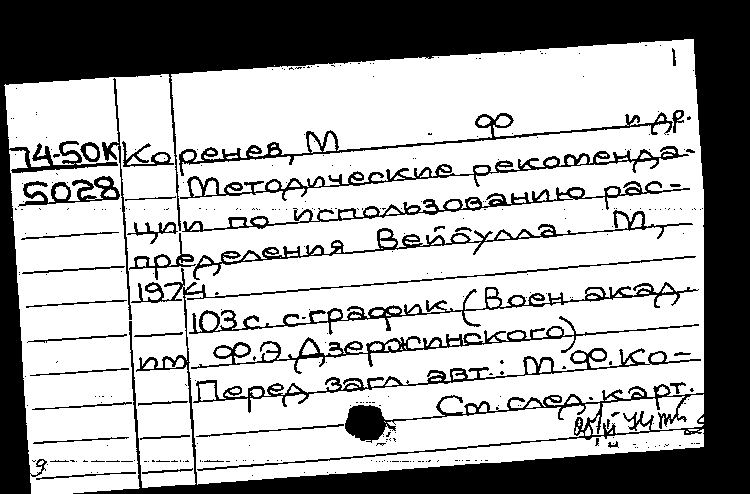 1
74-50К Коренев, М Ф и др.
5028 Методические рекоменда-
ции по использованию рас-
пределения Вейбулла. М.,
1974.
103с. с график. (Воен. акад.
им Ф.Э. Дзержинского)
Перед загл. авт.: М.Ф. Ко-
См. след. карт.
9